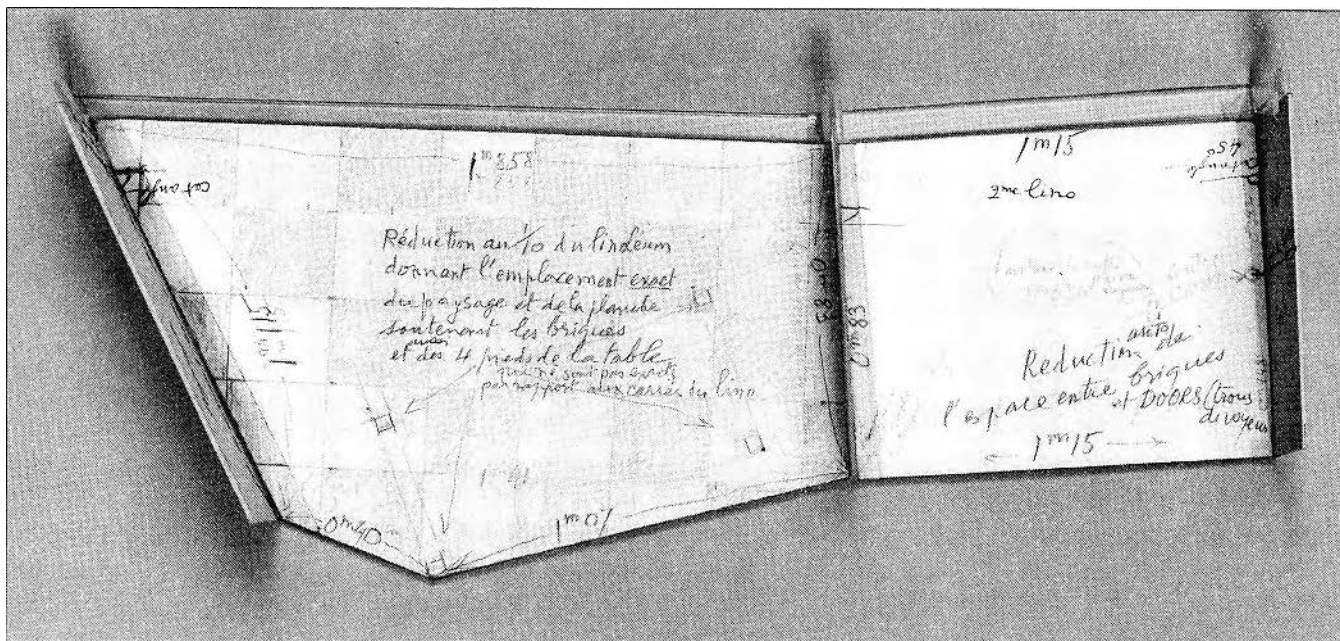 1m 858
cet angle
Réduction au 1/10 du linoleum
donnant l'emplacement exact
du paysage et de la planche
soutenant les briques
et des 4 pieds de la table
qui ne sont pas exacts
par rapport aux carrés du lino.
0m40
1m07
0m83
1m15
2me lino
450
cet angle
Reduction au 1/10 de
l'espace entre briques
et DOORS (trous
du voyeur
1m15